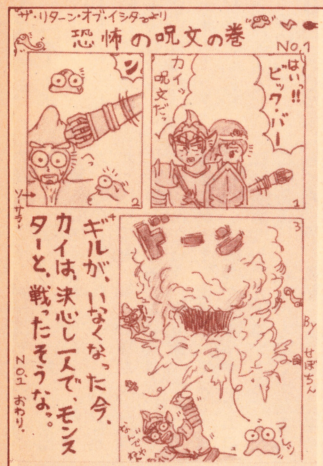 ザ・リターン・オブ・イシターより
恐怖の呪文の巻
NO.1
はいっ!!
ビッグ・バー
カイッ
呪文だ。
1
ン
2
ソーサラー
3
ドーン
By せぽちん
ギルが、いなくなった今、
カイは、決心し一人で、モンス
ターと、戦ったそうな。
NO.1 おわり。